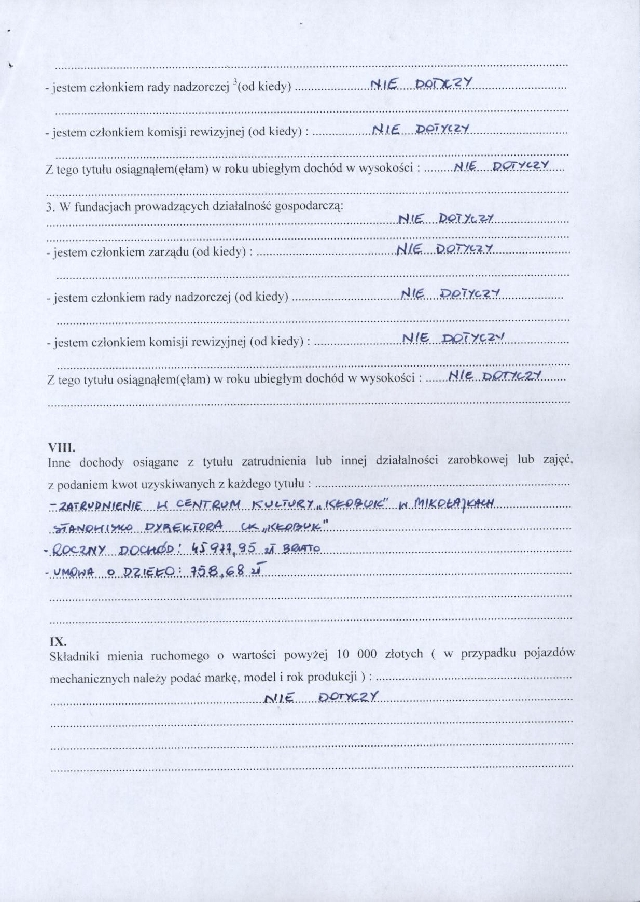 - jestem członkiem rady nadzorczej ³(od kiedy) NIE DOTYCZY
- jestem członkiem komisji rewizyjnej (od kiedy) : NIE DOTYCZY
Z tego tytułu osiągnąłem(ęłam) w roku ubiegłym dochód w wysokości : NIE DOTYCZY
3. W fundacjach prowadzących działalność gospodarczą:
NIE DOTYCZY
- jestem członkiem zarządu (od kiedy) : NIE DOTYCZY
- jestem członkiem rady nadzorczej (od kiedy) NIE DOTYCZY
- jestem członkiem komisji rewizyjnej (od kiedy) : NIE DOTYCZY
Z tego tytułu osiągnąłem(ęłam) w roku ubiegłym dochód w wysokości : NIE DOTYCZY
VIII.
Inne dochody osiągane z tytułu zatrudnienia lub innej działalności zarobkowej lub zajęć,
z podaniem kwot uzyskiwanych z każdego tytułu :
- ZATRUDNIENIE W CENTRUM KULTURY „KŁOBUK" W MIKOŁAJKACH
STANOWISKO DYREKTORA CK „KŁOBUK"
- ROCZNY DOCHÓD: 45 977,95 zł BRUTTO
- UMOWA O DZIEŁO: 758,68 zł
IX.
Składniki mienia ruchomego o wartości powyżej 10 000 złotych ( w przypadku pojazdów
mechanicznych należy podać markę, model i rok produkcji ) :
NIE DOTYCZY